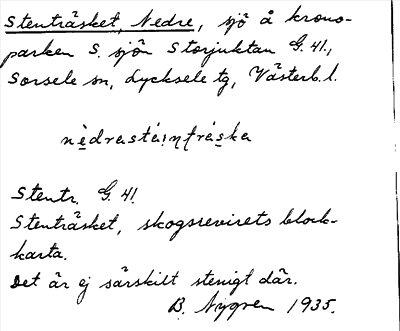 Stenträsket, Nedre, sjö å krono-
parken S. sjön Storjuktan G. 41.,
Sorsele sn, Lycksele tg, Västerb. l.
Stentr. G. 41.
Stenträsket, skogsrevirets block-
karta.
Det är ej särskilt stenigt där.
B. Nygren 1935.